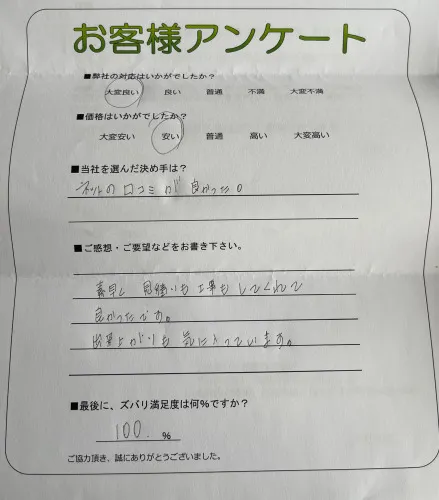 お客様アンケート
■弊社の対応はいかがでしたか？
大変良い 良い 普通 不満 大変不満
■価格はいかがでしたか？
大変安い 安い 普通 高い 大変高い
■当社を選んだ決め手は？
ネットの口コミが良かった。
■ご感想・ご要望などをお書き下さい。
素早く 見積りも工事もしてくれて
良かったです。
出来上がりも気に入っています。
■最後に、ズバリ満足度は何％ですか？
100. %
ご協力頂き、誠にありがとうございました。